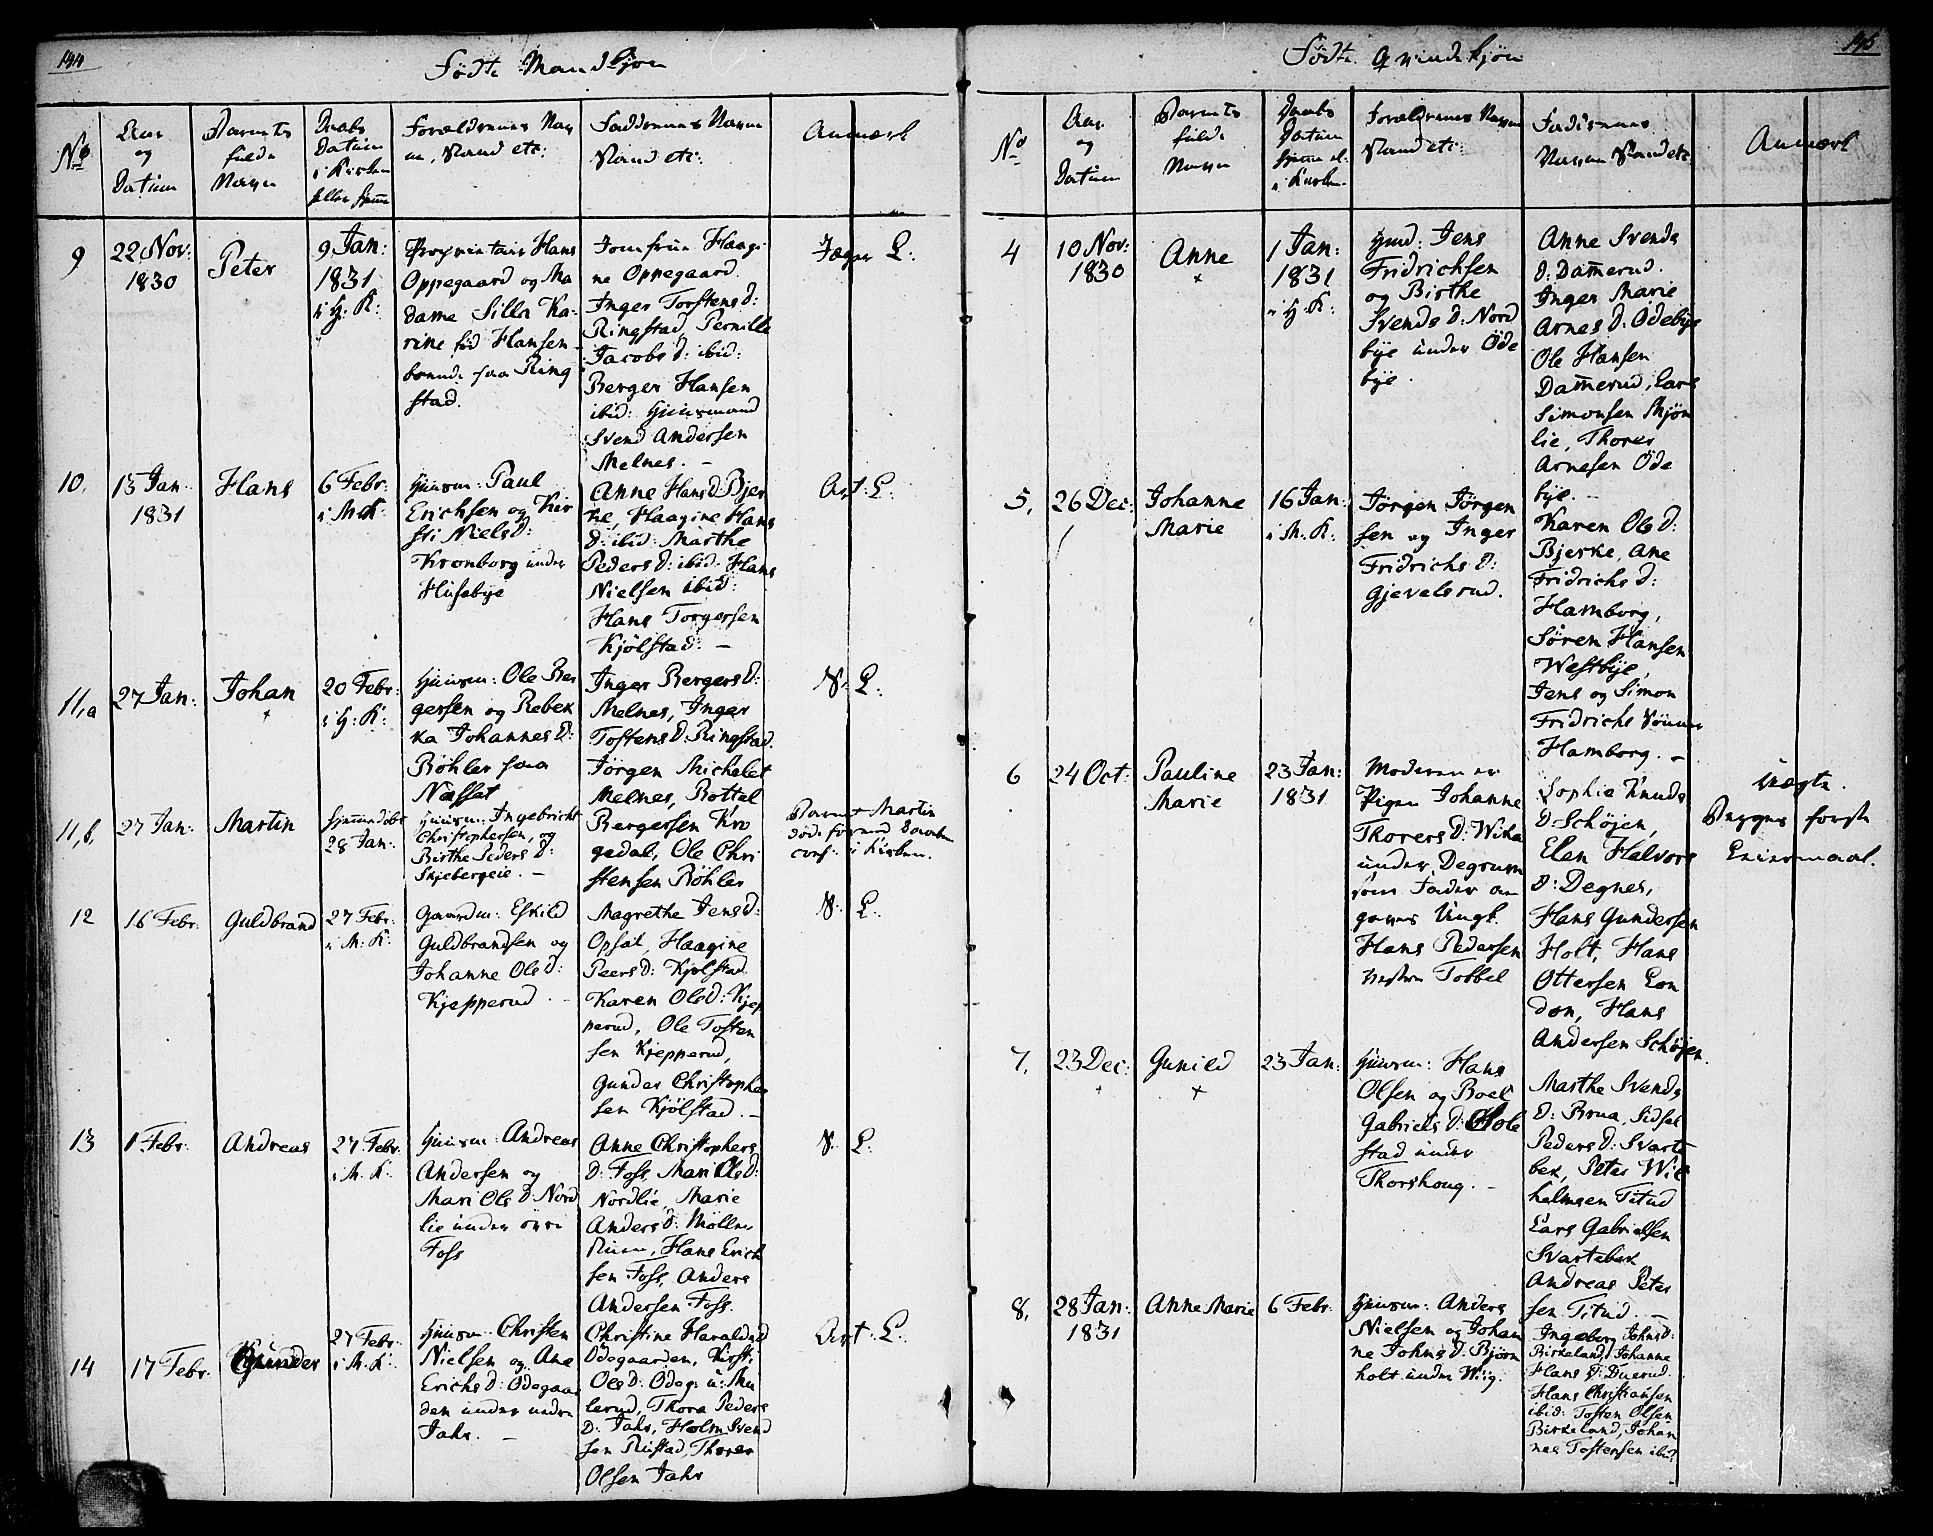 144
Födte Mandkjön
No
Aar
og
Datum
Barnets
fulde
Navn
Daabs
Datum
i Kirken
eller Hjem̄e
Forældrenes Nav
n, Stand etc:
Faddernes Navne
Stand etc:
Anmærk
9
22 Nov:
1830
Peter
9 Jan:
1831
i H: K:
Proprietair Hans
Oppegaard og Ma
dame Silla Ka-
rine föd Hansen
boende paa Ring
stad.
Jomfrue Haagi
ne Oppegaard.
Inger Torstens d:
Ringstad, Pernille
Jacobs d: ibid:
Berger Hansen
ibid: Huusmand
Svend Andersen
Melnes. –
Jæger L:
10.
13 Jan
1831
Hans
6 Febr:
i M: K:
Huusm: Paul
Erichsen og Kir
sti Niels d:
Kronborg under
Husebye
Anne Hans d: Bjer
ke, Haagine Hans
d: ibid: Marthe
Peders d: ibid. Hans
Nielsen ibid:
Hans Torgersen
Kjölstad: –
Art: L:
11,a
27 Jan:
Johan
+
20 Febr:
i H: K:
Huusm: Ole Ber
gersen og Rebek
ka Johannes d:
Böhler paa
Næsset
Inger Bergers d:
Melnes, Inger
Tostens d: Ringstad.
Jörgen Michelet
Melnes, Bottel
Bergersen Kro
gedal, Ole Chri
stensen Böhler
N: L:
11,b,
27 Jan:
Martin
hjemmedöbt
28 Jan:
Huusm: Ingebricht
Christophersen, og
Birthe Peders d:
Skjebergeie. –
Barnet Martin
döde förend Daaben
conf: i Kirken.
12
16 Febr:
Guldbrand
27 Febr:
i M: K:
Gaardm: Eskild
Guldbrandsen og
Johanne Ols d:
Kjepperud. –
Magrethe Jens d:
Opsal, Haagine
Peers d: Kjölstad
Karen Ols d: Kjep
perud, Ole Tosten
sen Kjepperud,
Gunder Christopher
sen Kjölstad. –
N: L:
13
1 Febr:
Andreas
27 Febr:
i M: K:
Huusm: Andreas
Andersen og
Mari Ols d: Nord
lie under övre
Foss
Anne Christophers
d: Foss, Mari Ols d:
Nordlie, Marie
Anders d: Mölle,
Hans Erich
sen Foss, Anders
Andersen Foss.
N: L:
14
17 Febr:
Gunder
27 Febr:
i M: K:
Huusm: Christen
Nielsen og Ane
Erichs d: Ödegaar
den under nedre
Jahr. –
Christine Haralds d
Ödegaarden, Kirsti
Ols d: Ödeg: u: Mu
lerud, Thora Peders
d: Jahr, Holm Svend
sen Rustad, Thorer
Olsen Jahr
Art: L:
145
Födte Qvindekjön
No
Aar
og
Datum
Barnets
fulde
Navn
Daabs
Datum
hjem̄e el.
i Kirken
Forældrenes Navne
Stand etc:
Faddernes
Navne Stand etc
Anmærk
4
10 Nov:
1830
Anne
+
1 Jan:
1831
i H: K:
Huusm: Jens
Fridrichsen
og Birthe
Svends d: Nord
bye under Öde
bye.
Anne Svends
d: Dam̄erud.
Inger Marie
Arnes d: Ödebye
Ole Hansen
Dam̄erud, Lars
Simonsen Skjön
lie, Thorer
Arnesen Öde
bye. –
5,
26 Dec:
Johanne
Marie
16 Jan:
i M. K:
Jörgen Jörgen
sen og Inger
Fridrichs d:
Gjevelsrud.
Karen Ols d:
Bjerke, Ane
Fridrichs d:
Hamborg,
Sören Hansen
Westbye,
Jens og Simon
Fridrichs Sönner
Hamborg. –
6
24 Oct:
Pauline
Marie
23 Jan:
1831
Moderen er
Pigen Johanne
Thorers d: Wika
under Degrum
som Fader an
gives Ungk.
Hans Pedersen
vestre Tobbel
Sophie Knuds
d: Schöjen,
Elen Halvors
d: Degnes,
Hans Gundersen
Holt, Hans
Ottersen Lon
don, Hans
Andersen Schöjen.
Uægte.
Begges förste
Leiermaal.
7,
23 Dec:
+
Gunild
+
23 Jan:
Huusm: Hans
Olsen og Boel
Gabriels d: Hole
stad under
Thorshoug. –
Marthe Svends
d: Brua, Sidsel
Peders d: Svarte
bek, Peter Wil
helmsen Titud
Lars Gabrielsen
Svartebek
Andreas Peter
sen Titud. –
8,
28 Jan:
1831
Anne Marie
6 Febr:
Huusm: Anders
Nielsen og Johan
ne Johns d: Björn
holt under Wiig.
Ingeborg Johns d:
Birkeland, Johanne
Hans d: Duerud.
Hans Christiansen
ibid: Tosten Olsen
Birkeland, Johan
nes Tostensen ibid